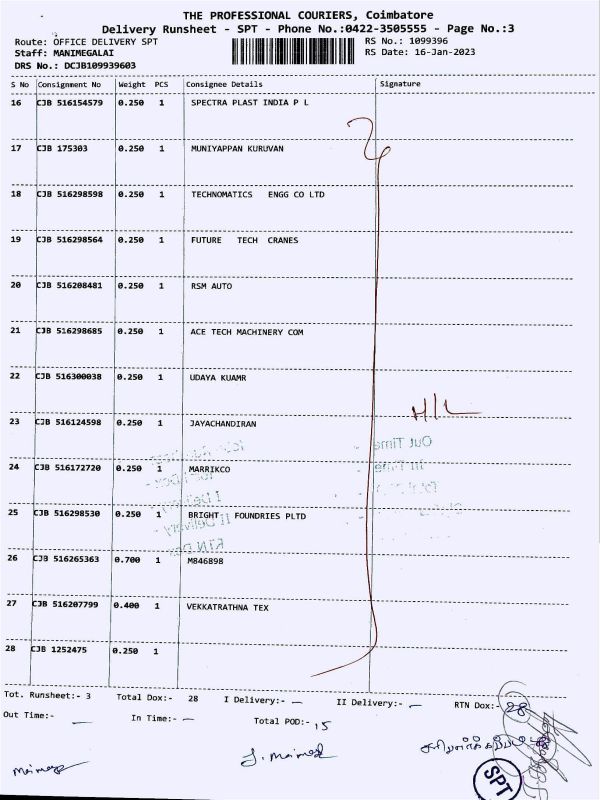 THE PROFESSIONAL COURIERS, Coimbatore
Delivery Runsheet - SPT - Phone No.:0422-3505555 - Page No.:3
Route: OFFICE DELIVERY SPT
RS No.: 1099396
Staff: MANIMEGALAI
RS Date: 16-Jan-2023
DRS No.: DCJB109939603
S No Consignment No Weight PCS Consignee Details Signature
16 CJB 516154579 0.250 1 SPECTRA PLAST INDIA P L
17 CJB 175303 0.250 1 MUNIYAPPAN KURUVAN
18 CJB 516298598 0.250 1 TECHNOMATICS ENGG CO LTD
19 CJB 516298564 0.250 1 FUTURE TECH CRANES
20 CJB 516208481 0.250 1 RSM AUTO
21 CJB 516298685 0.250 1 ACE TECH MACHINERY COM
22 CJB 516300038 0.250 1 UDAYA KUAMR
H/L
23 CJB 516124598 0.250 1 JAYACHANDIRAN
Out Time
In Time
24 CJB 516172720 0.250 1 MARRIKCO
I Delivery -
25 CJB 516298530 0.250 1 BRIGHT FOUNDRIES PLTD
II Delivery -
RTN Dox
26 CJB 516265363 0.700 1 M846898
27 CJB 516207799 0.400 1 VEKKATRATHNA TEX
28 CJB 1252475 0.250 1
Tot. Runsheet:- 3 Total Dox:- 28 I Delivery:- — II Delivery:- — RTN Dox:- 28
Out Time:- — In Time:- — Total POD:- 15
SPT